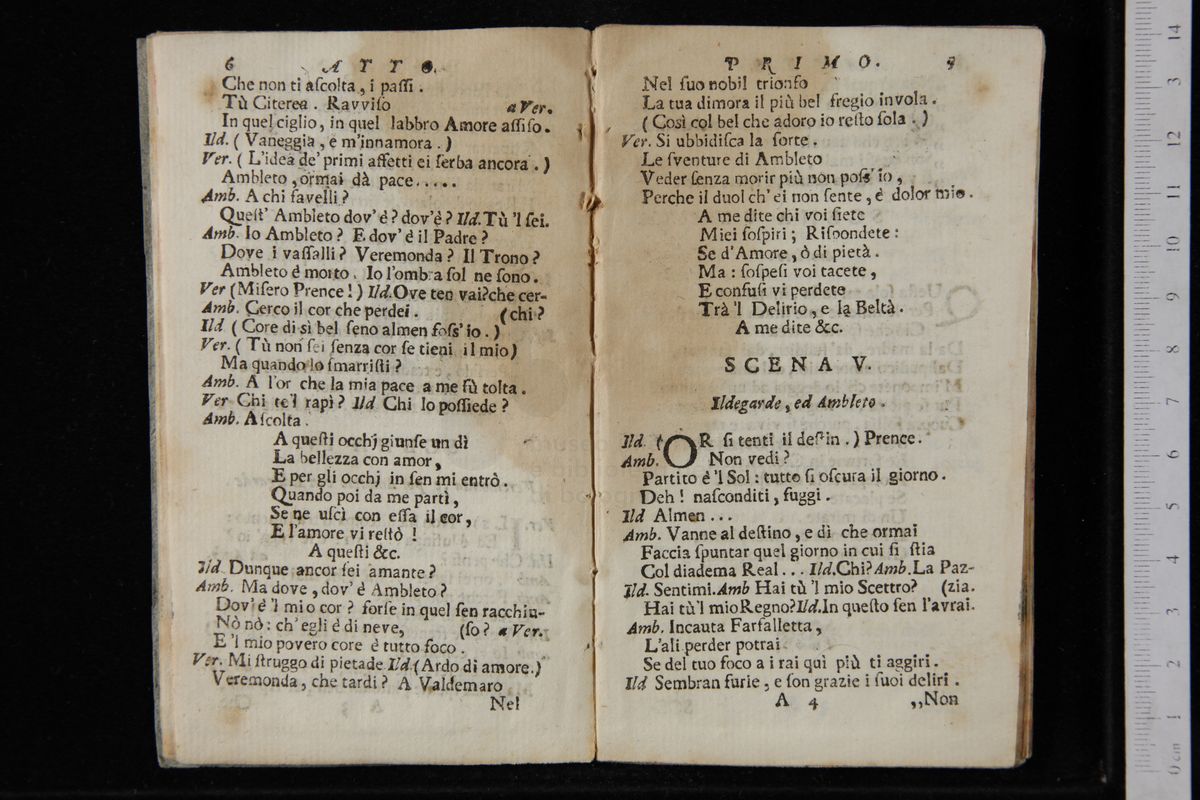 6 ATTO.
Che non ti aſcolta, i paſſi.
Tù Citerea. Ravviſo a Ver.
In quel ciglio, in quel labbro Amore aſſiſo.
Ild. (Vaneggia, e m'innamora.)
Ver. (L'idea de' primi affetti ei ſerba ancora.)
Ambleto, ormai dà pace.....
Amb. A chi favelli?
Queſt' Ambleto dov'è? dov'è? Ild. Tù 'l ſei.
Amb. Io Ambleto? E dov'è il Padre?
Dove i vaſſalli? Veremonda? Il Trono?
Ambleto è morto. Io l'ombra ſol ne ſono.
Ver (Miſero Prence!) Ild. Ove ten vai? che cer-
Amb. Cerco il cor che perdei. (chi?
Ild (Core di sì bel ſeno almen foſs'io.)
Ver. (Tù non ſei ſenza cor ſe tieni il mio)
Ma quando lo ſmarriſti?
Amb. A l'or che la mia pace a me fù tolta.
Ver Chi te'l rapì? Ild Chi lo poſſiede?
Amb. Aſcolta.
A queſti occhj giunſe un dì
La bellezza con amor,
E per gli occhj in ſen mi entrò.
Quando poi da me partì,
Se ne uſcì con eſſa il cor,
E l'amore vi reſtò!
A queſti &c.
Ild. Dunque ancor ſei amante?
Amb. Ma dove, dov'è Ambleto?
Dov'è 'l mio cor? forſe in quel ſen racchiu-
Nò nò: ch'egli è di neve, (ſo? a Ver.
E 'l mio povero core è tutto foco.
Ver. Mi ſtruggo di pietade Ild. (Ardo di amore.)
Veremonda, che tardi? A Valdemaro
Nel
PRIMO. 7
Nel ſuo nobil trionfo
La tua dimora il più bel fregio invola.
(Così col bel che adoro io reſto ſola.)
Ver. Si ubbidiſca la ſorte.
Le ſventure di Ambleto
Veder ſenza morir più non poſs'io,
Perche il duol ch'ei non ſente, è dolor mio.
A me dite chi voi ſiete
Miei ſoſpiri; Riſpondete:
Se d'Amore, ò di pietà.
Ma: ſoſpeſi voi tacete,
E confuſi vi perdete
Trà 'l Delirio, e la Beltà.
A me dite &c.
SCENA V.
Ildegarde, ed Ambleto.
Ild. (OR ſi tenti il deſtin.) Prence.
Amb. Non vedi?
Partito è 'l Sol: tutto ſi oſcura il giorno.
Deh! naſconditi, fuggi.
Ild Almen...
Amb. Vanne al deſtino, e dì che ormai
Faccia ſpuntar quel giorno in cui ſi ſtia
Col diadema Real... Ild. Chi? Amb. La Paz-
Ild. Sentimi. Amb Hai tù 'l mio Scettro? (zia.
Hai tù'l mio Regno? Ild. In queſto ſen l'avrai.
Amb. Incauta Farfalletta,
L'ali perder potrai
Se del tuo foco a i rai quì più ti aggiri.
Ild Sembran furie, e ſon grazie i ſuoi deliri.
A 4 ,,Non